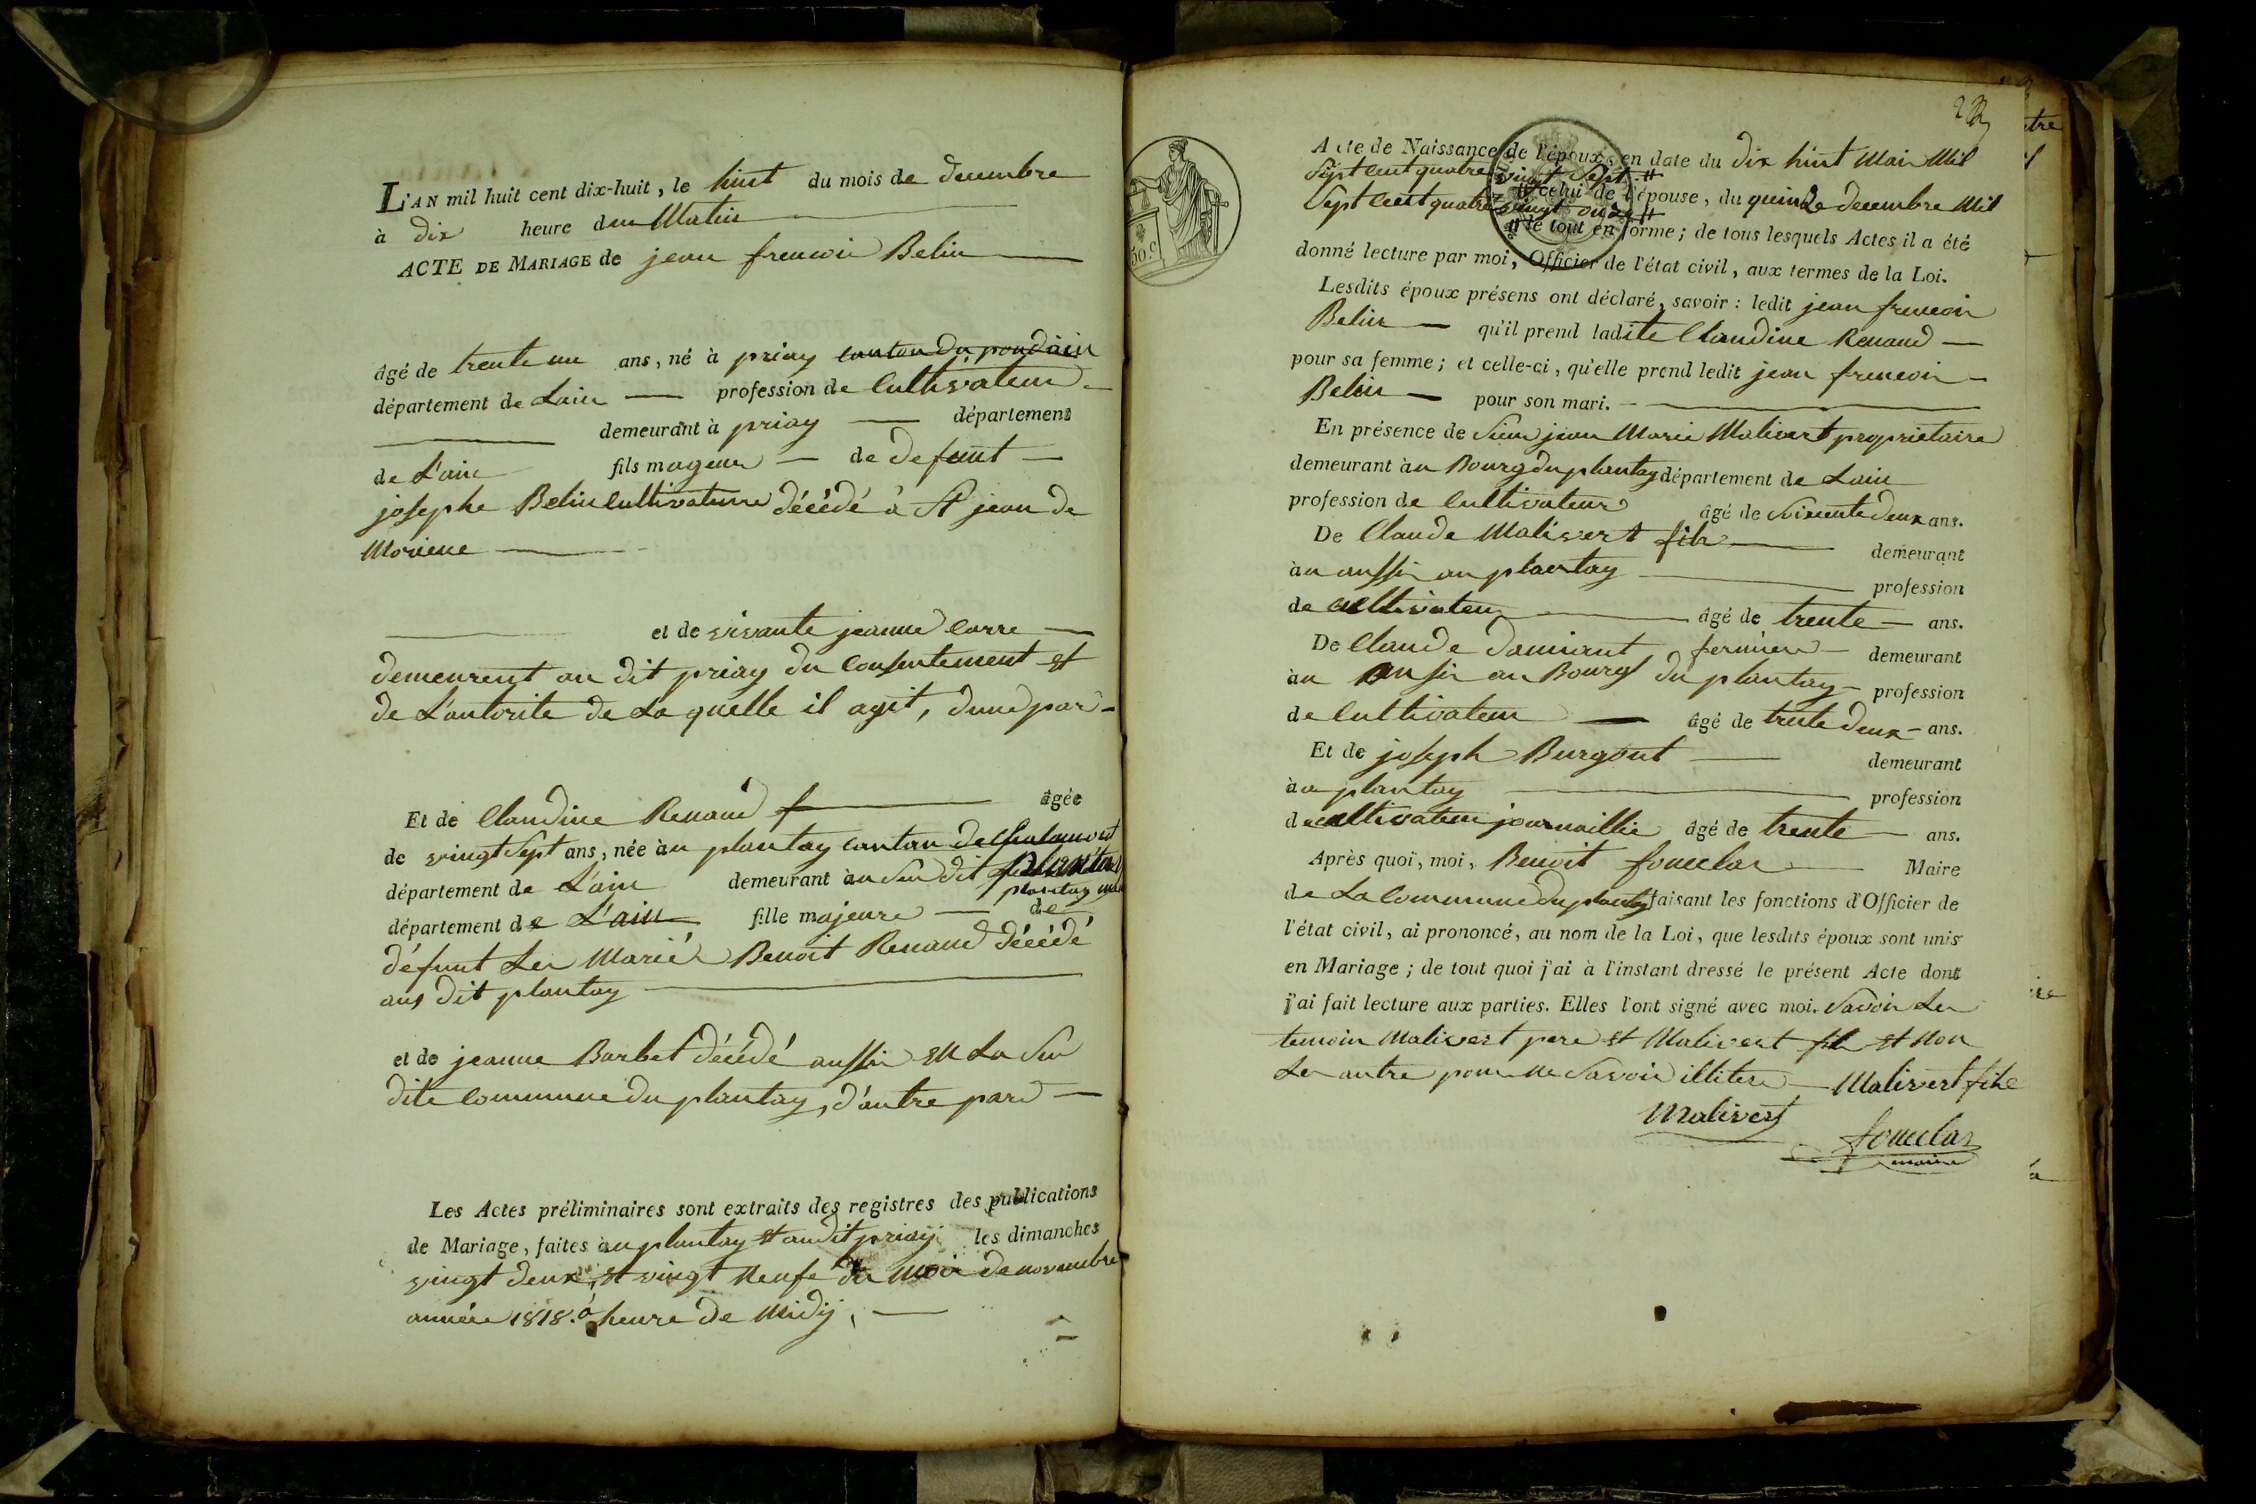 L'AN mil huit cent dix-huit, le huit du mois de decembre
à dix heure du Matin
ACTE DE MARIAGE de jean francoi Belin
âgé de trente un ans, né à priay canton du pondain
département de Lain profession de Cultivateur
demeurant à priay département
de L'ain fils mageur de defunt
josephe Belin cultivateur décédé a St jean de
Moriene
et de vivante jeanne Carre
demeurent au dit priay du Consentement et
de L'autorite de La quelle il agit, d'une par
Et de Claudine Renaud âgée
de vingt sept ans, née àu plantay canton de Chalamont
département de L'ain demeurant àu sus dit
plantay
département de L'ain fille majeure de
défunt Les Marié Benoit Renaud décédé
au dit plantay
et de jeanne Barbet décédé aussi en La Sus
dite Commune du plantay, d'autre par
Les Actes préliminaires sont extraits des registres des publications
de Mariage, faites àu plantay et audit priay les dimanches
vingt deux et vingt neufe du moi de novembre
année 1818. à heure de midy,
Acte de Naissance de l'époux, en date du dix huit Mai Mil
Sept cent quatre vingt Sept
celui de l'épouse, du quinze decembre Mil
Sept cent quatre vingt onze
le tout en forme; de tous lesquels Actes il a été
donné lecture par moi, Officier de l'état civil, aux termes de la Loi.
Lesdits époux présens ont déclaré, savoir: ledit jean francoi
Belin qu'il prend ladite Claudine Renaud
pour sa femme; et celle-ci, qu'elle prend ledit jean francoi
Belin pour son mari.
En présence de Sieur jean Marie Malivert proprietaire
demeurant àu Bourg du plantay département de Lain
profession de Cultivateur âgé de Soixente deux ans.
De Claude Malivert fils demeurant
àu aussi au plantay profession
de cultivateur âgé de trente ans.
De Claude Damiant fermier demeurant
àu ausi au Bourg du plantay profession
de Cultivateur âgé de trente deux ans.
Et de joseph Burgout demeurant
àu plantay profession
de cultivateur journaillie âgé de trente ans.
Après quoi, moi, Benoit fouclas Maire
de La Commune du plantay faisant les fonctions d'Officier de
l'état civil, ai prononcé, au nom de la Loi, que lesdits époux sont unis
en Mariage; de tout quoi j'ai à l'instant dressé le présent Acte dont
j'ai fait lecture aux parties. Elles l'ont signé avec moi. Savoir Les
temoin Malivert pere et Malivert fils et Non
Les autre pour ne Savoir illitere Malivert fils
Malivert
fouclas
maire
50.c